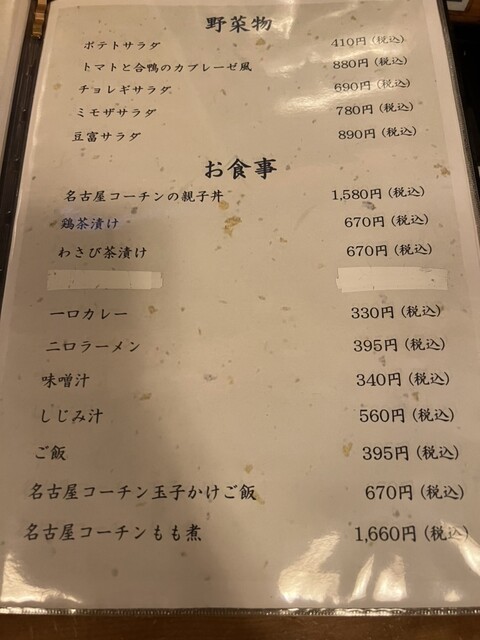 野菜物
ポテトサラダ 410円 (税込)
トマトと合鴨のカプレーゼ風 880円 (税込)
チョレギサラダ 690円 (税込)
ミモザサラダ 780円 (税込)
豆富サラダ 890円 (税込)
お食事
名古屋コーチンの親子丼 1,580円 (税込)
鶏茶漬け 670円 (税込)
わさび茶漬け 670円 (税込)
一口カレー 330円 (税込)
二口ラーメン 395円 (税込)
味噌汁 340円 (税込)
しじみ汁 560円 (税込)
ご飯 395円 (税込)
名古屋コーチン玉子かけご飯 670円 (税込)
名古屋コーチンもも煮 1,660円 (税込)